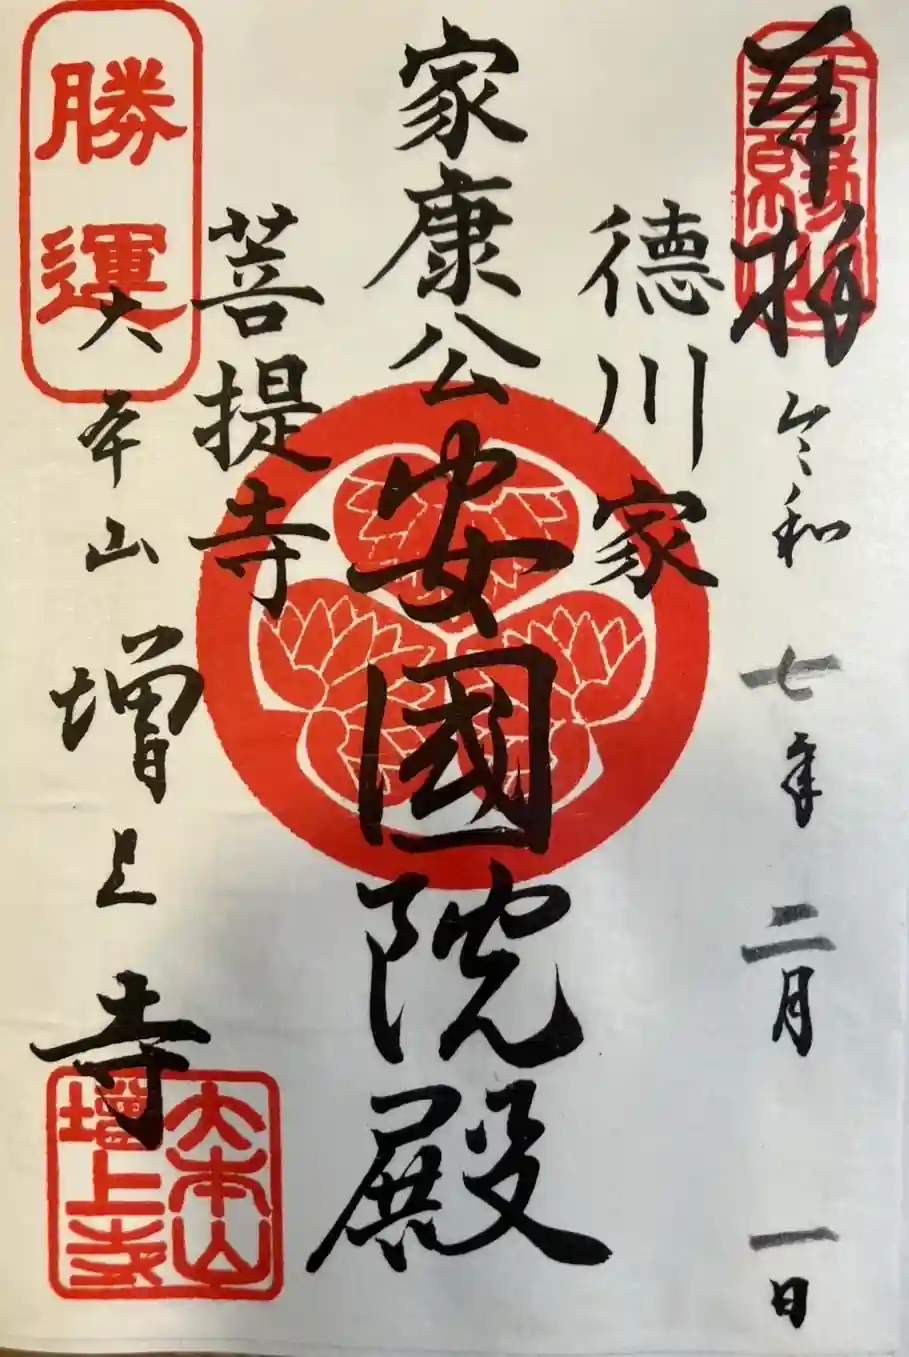 奉拝
令和七年二月一日
徳川家
家康公安國院殿
菩提寺
勝運
大本山増上寺
大本山
増上寺